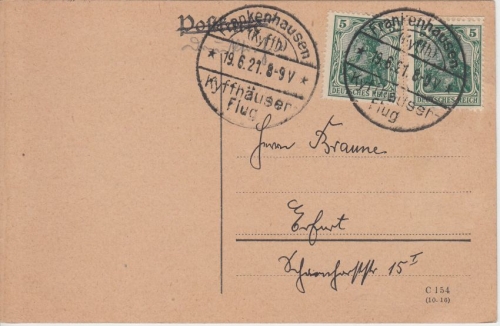 Postkarte
Frankenhausen
(Kyffh)
* 19.6.21. 8-9 V *
Kyffhäuser-
Flug
5
DEUTSCHES REICH
5
DEUTSCHES REICH
Frankenhausen
(Kyffh)
* 19.6.21. 8-9 V *
Kyffhäuser-
Flug
Herrn Braune
Erfurt
Scharnhorststr 15 I
C 154